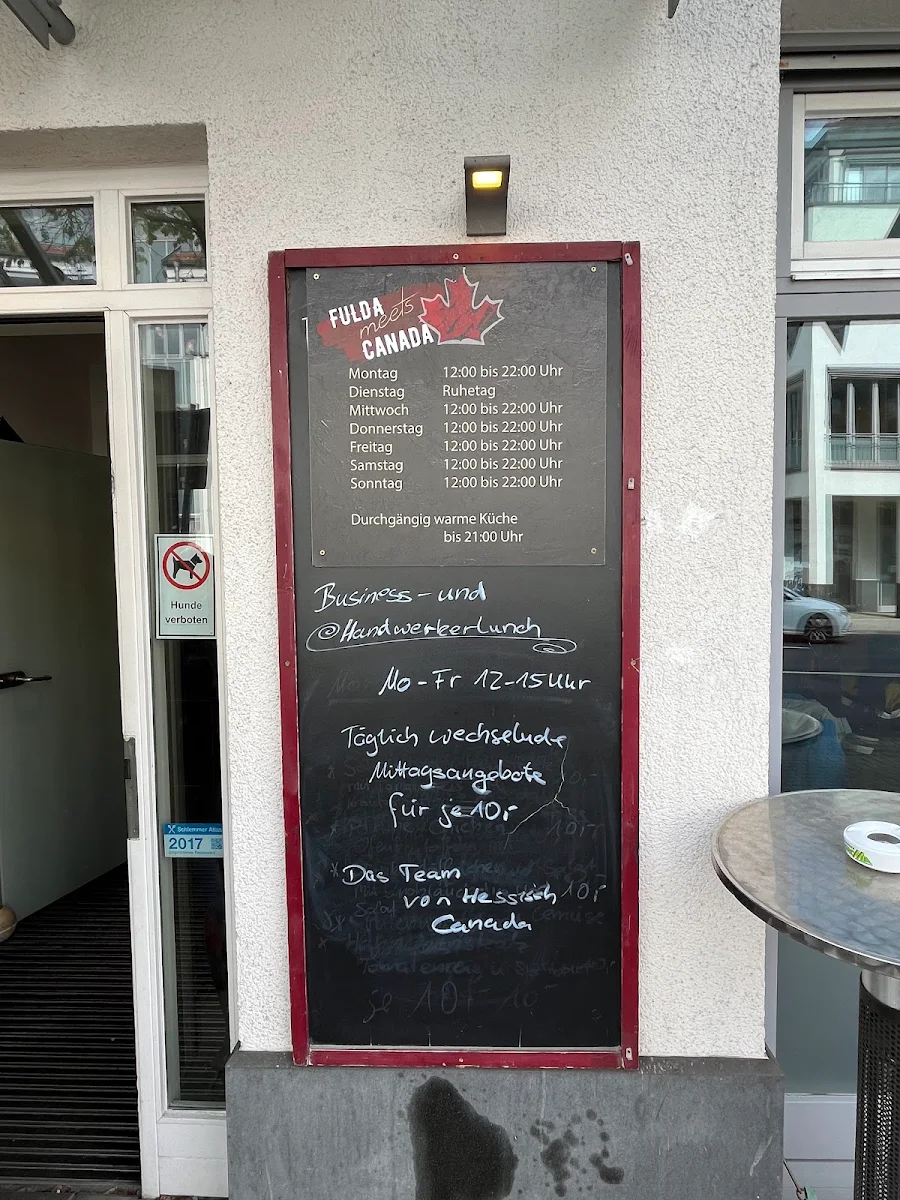 FULDA
meets
CANADA
Montag 12:00 bis 22:00 Uhr
Dienstag Ruhetag
Mittwoch 12:00 bis 22:00 Uhr
Donnerstag 12:00 bis 22:00 Uhr
Freitag 12:00 bis 22:00 Uhr
Samstag 12:00 bis 22:00 Uhr
Sonntag 12:00 bis 22:00 Uhr
Durchgängig warme Küche
bis 21:00 Uhr
Business- und
@Handwerkerlunch
Mo-Fr 12-15 Uhr
Täglich wechselnde
Mittagsangebote
für je 10,-
Das Team
von Hessisch
Canada
je 10,-
Hunde
verboten
2017